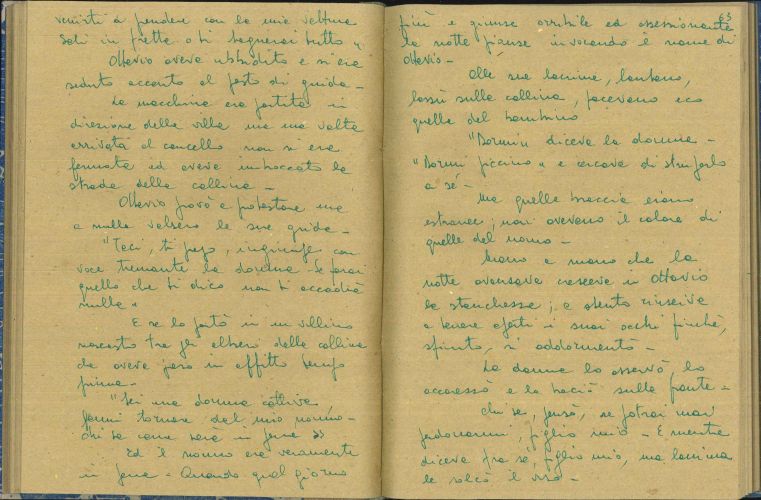 venisti a prendere con la mia vettura
Sali in fretta o ti bagnerai tutto "
Ottavio aveva ubbidito e si era
seduto accanto al posto di guida -
La macchina era partita in
direzione della villa ma una volta
arrivata al cancello non si era
fermata ed aveva imboccato la
strada della collina -
Ottavio provò a protestare ma
a nulla valsero le sue grida -
"Taci, ti prego, ingiunse con
voce tremante la donna - Se farai
quello che ti dico non ti accadrà
nulla "
E se lo portò in un villino
nascosto tra gli alberi della collina
che aveva preso in affitto tempo
prima -
"Sei una donna cattiva,
fammi tornare dal mio nonno -
Chi sa come sarà in pena "
Ed il nonno era veramente
in pena - Quando quel giorno
63
finì e giunse orribile ed ossessionante
la notte pianse invocando il nome di
Ottavio -
Alle sue lacrime, lontano,
lassù sulla collina, facevano eco
quelle del bambino
"Dormi" diceva la donna -
"Dormi piccino" e cercava di stringerlo
a sé -
Ma quelle braccia erano
estranee; non avevano il calore di
quelle del nonno -
Mano a mano che la
notte avanzava cresceva in Ottavio
la stanchezza; a stento riusciva
a tenere aperti i suoi occhi finché,
sfinito, si addormentò -
La donna lo osservò, lo
accarezzò e lo baciò sulla fronte -
Chi sa, pensò, se potrai mai
perdonarmi, figlio mio - E mentre
diceva fra sé, figlio mio, una lacrima
le solcò il viso -